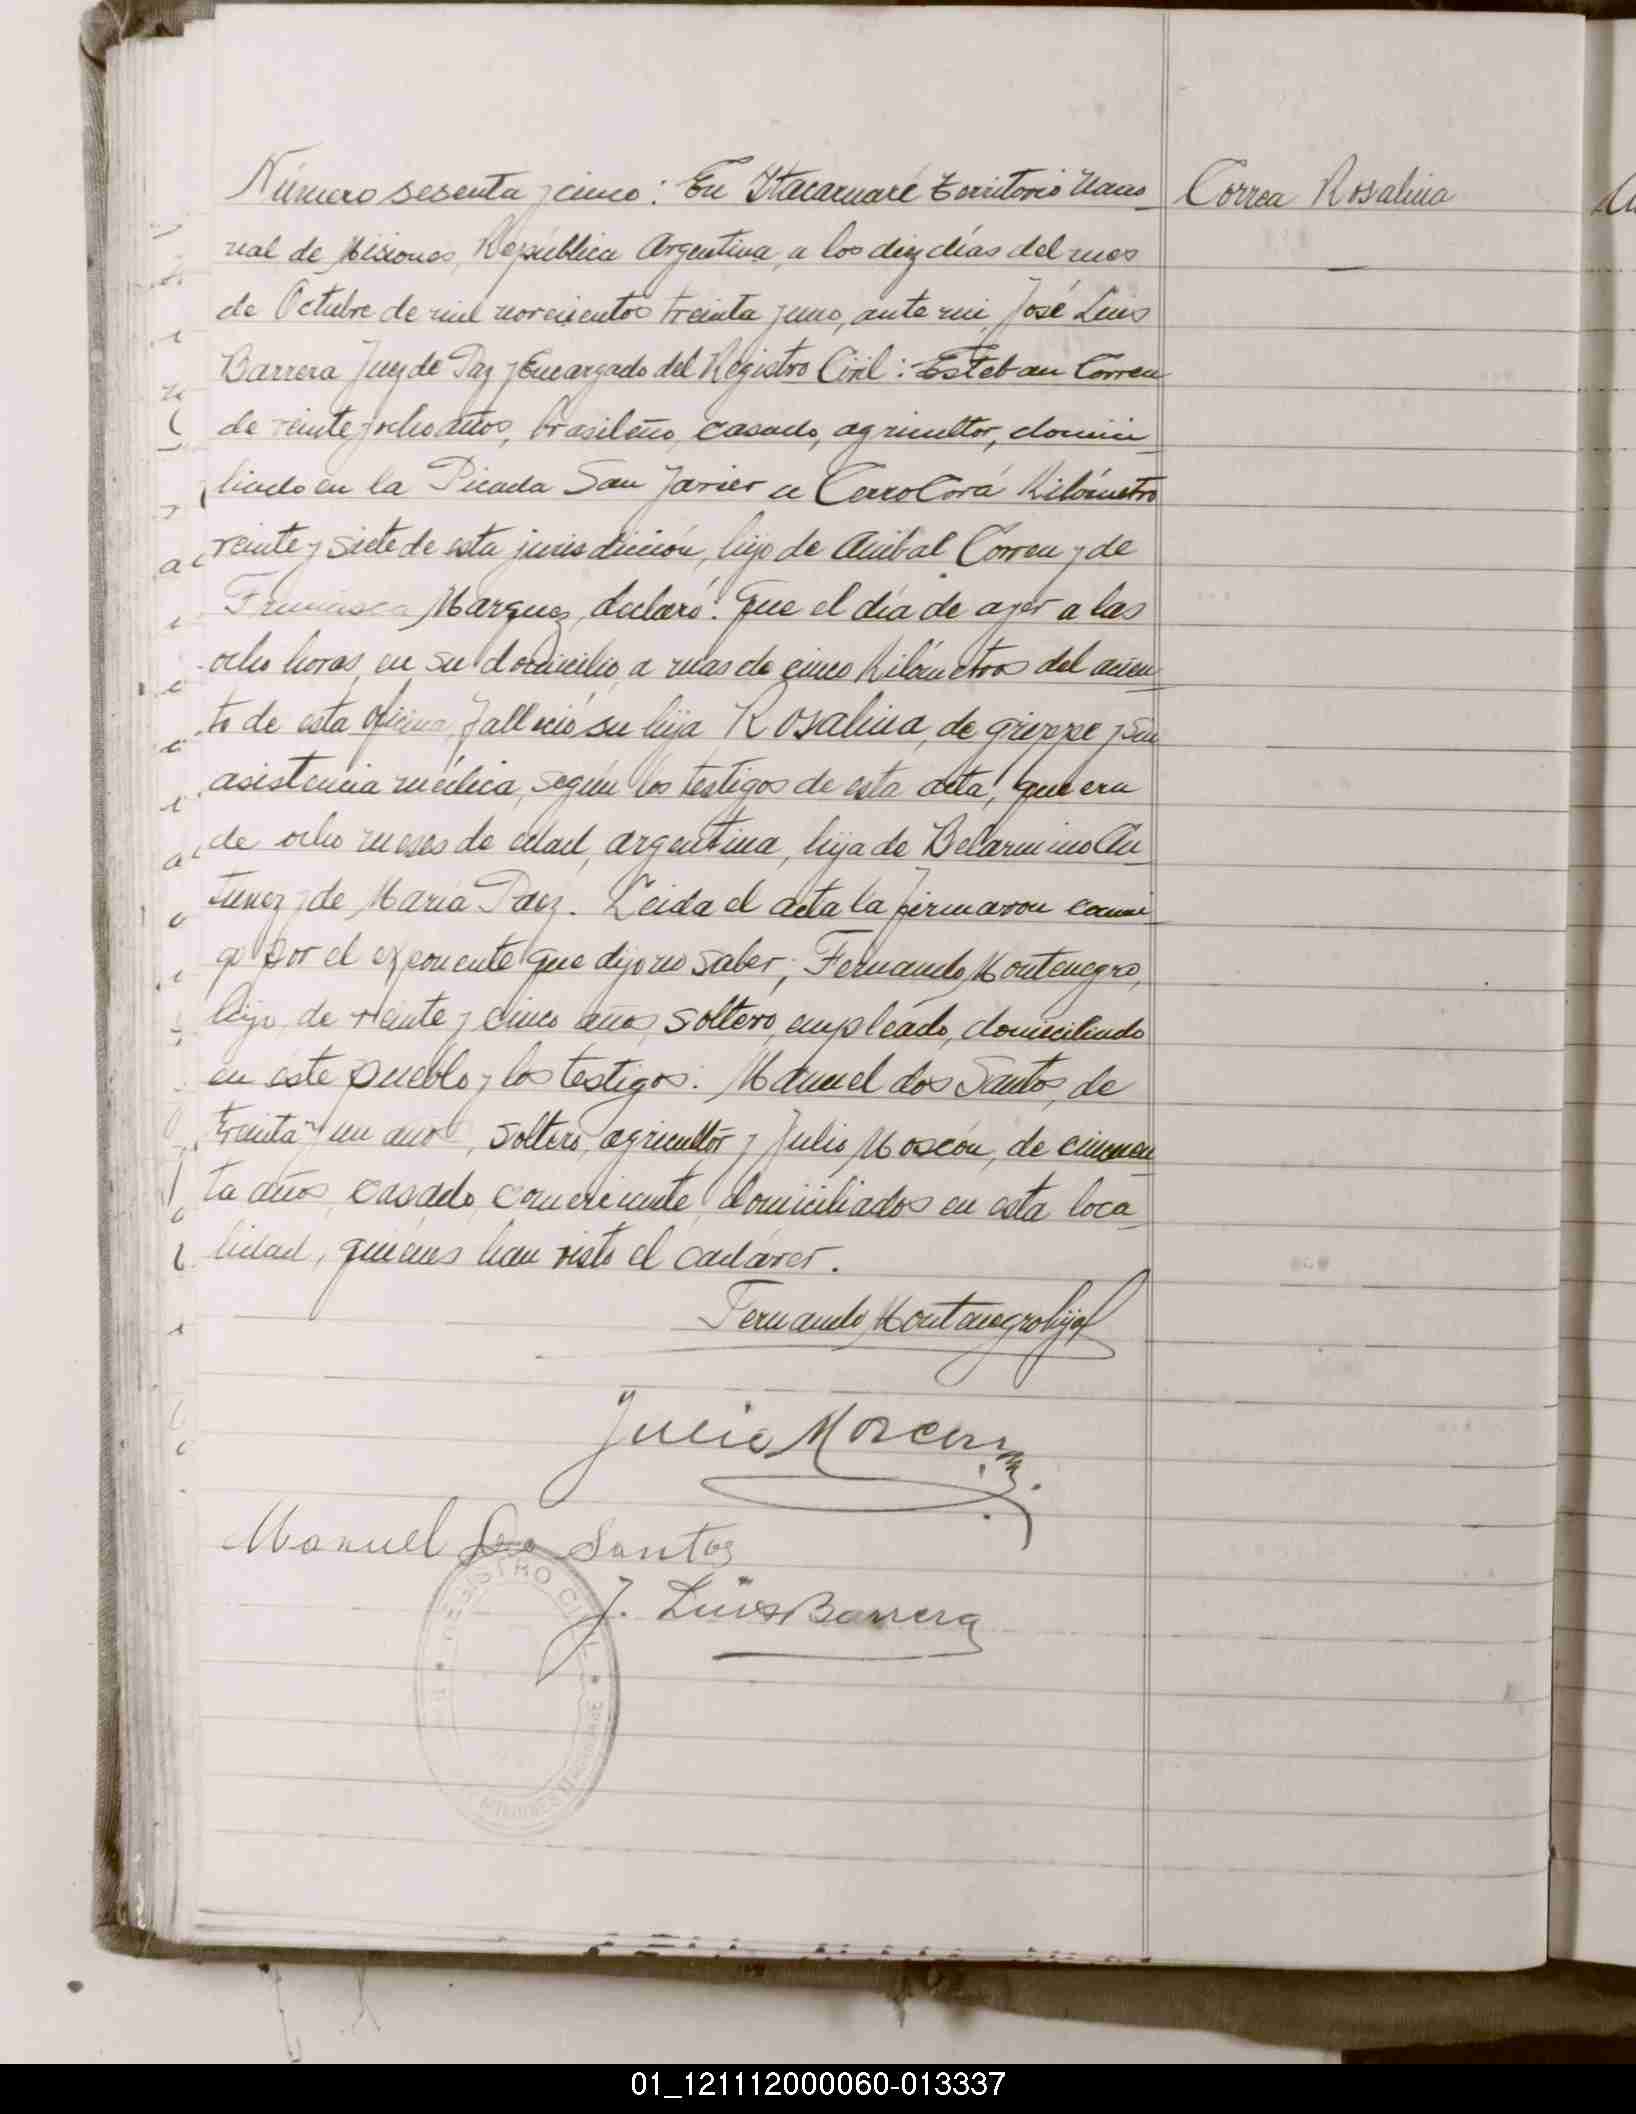 Número sesenta y cinco: En Itacaruaré Territorio Nacio_
nal de Misiones, República Argentina, a los diez días del mes
de Octubre de mil novecientos treinta y uno, ante mi, José Luis
Barrera Juez de Paz y Encargado del Registro Civil: Esteban Correa
de veinte y ocho años, brasileño, casado, agricultor, domici_
liado en la Picada San Javier a Cerro Corá Kilómetro
veinte y siete de esta jurisdicción, hijo de Anibal Correa y de
Francisca Marquez, declaró: Que el día de ayer a las
ocho horas, en su domicilio, a mas de cinco Kilómetros del asien_
to de esta oficina, falleció su hija Rosalina, de grippe y sin
asistencia médica, según los testigos de esta acta, que era
de ocho meses de edad, argentina, hija de Belarmino An_
tunez y de María Paez. Leida el acta la firmaron conmi_
go por el exponente que dijo no saber, Fernando Montenegro,
hijo, de veinte y cinco años, soltero, empleado, domiciliado
en éste pueblo y los testigos: Manuel dos Santos, de
treinta y un años, soltero, agricultor y Julio Moscón, de cincuen_
ta años, casado, comerciante, domiciliados en esta loca_
lidad, quienes han visto el cadáver.
Correa Rosalina
Fernando Montenegro hijo
Julio Moscon
Manuel Dos Santos
J. Luis Barrera
REGISTRO CIVIL
01_121112000060-013337